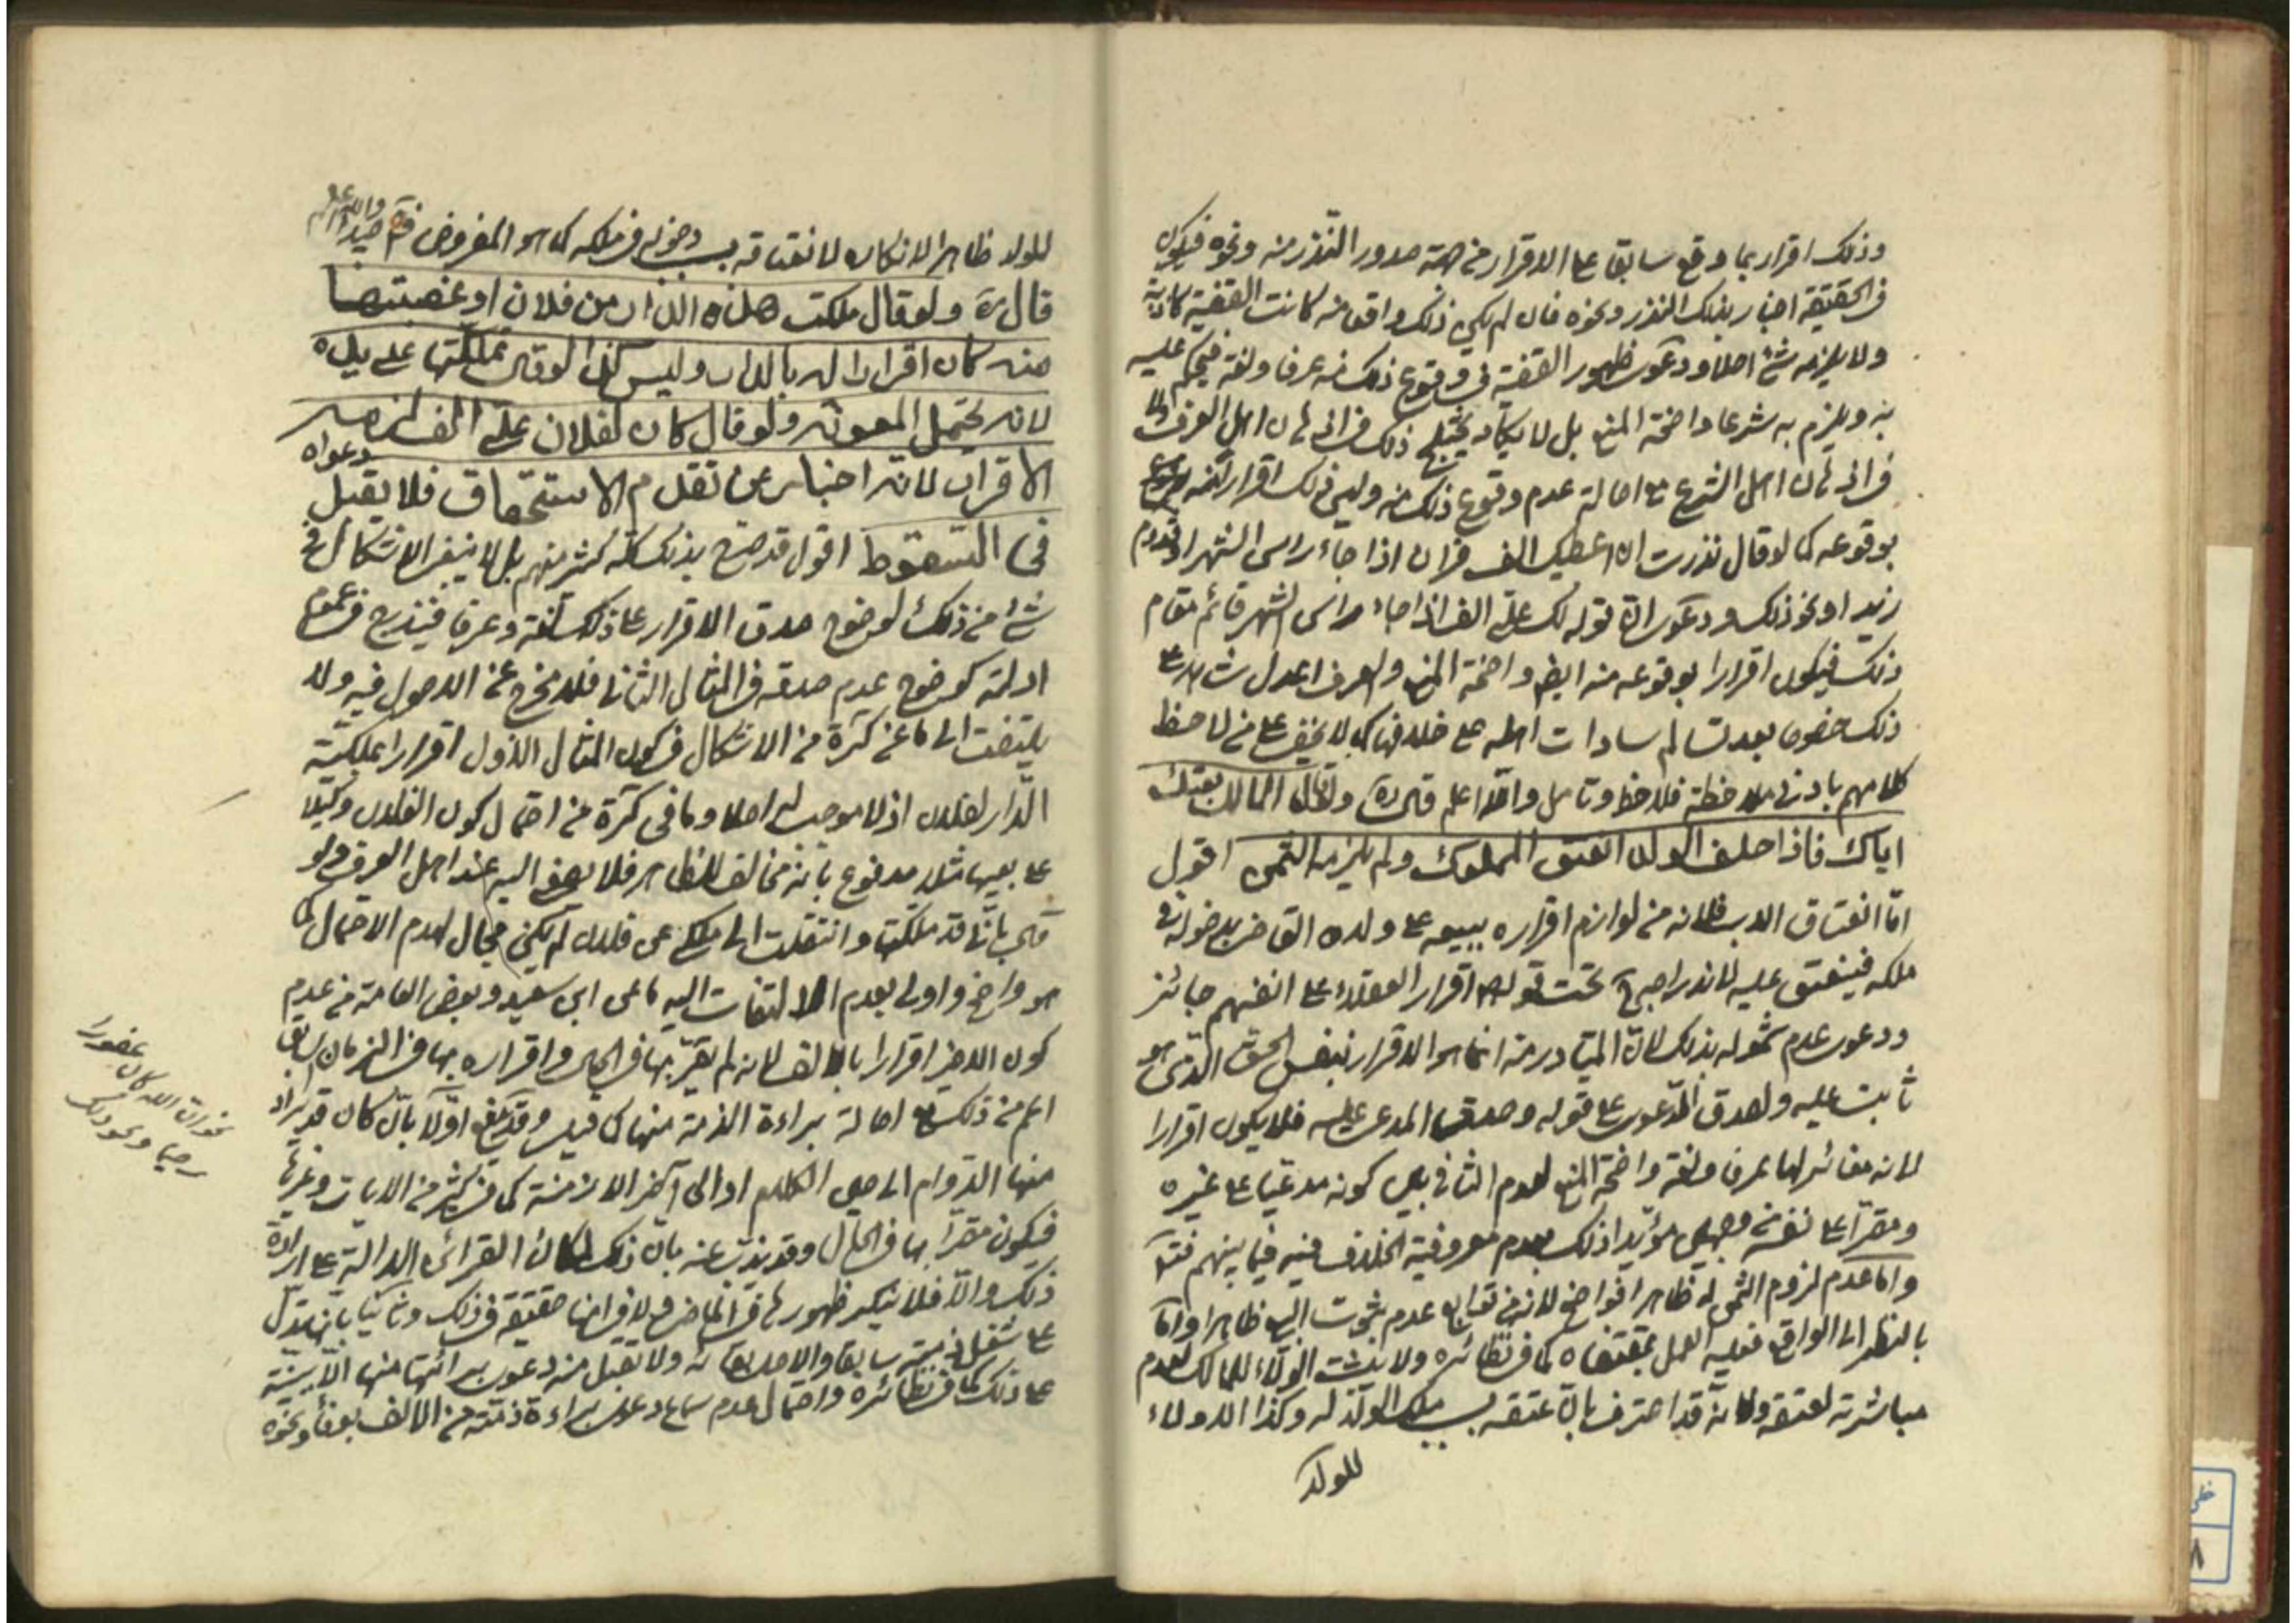 وذلك اقرار بما وقع سابقا على الاقرار من جهة صدور النذر منه ونحوه فيكون
فى الحقيقة اخبار بذلك النذر ونحوه فان لم يكن ذلك واقعا منه كانت القضية كاذبة
ولا يلزمه شئ اصلا ودعوى ظهور القضية فى وقوع ذلك منه عرفا ولغة فيحكم عليه
به ويلزم به شرعا واضحة المنع بل لا يكاد يختلج ذلك فى اذهان اهل العرف
فى اذهان اهل الشرع مع اصالة عدم وقوع ذلك منه وليس ذلك اقرار
بوقوعه كما لو قال نذرت ان اعطيك الف قران اذا جاء راس الشهر او قدوم
زيد او نحو ذلك ودعوى ان قوله لك على الف اذا جاء راس الشهر قائم مقام
ذلك فيكون اقرارا بوقوعه منه ايضا واضحة المنع والعرف اعدل شاهد على
ذلك خصوصا بعد تسالم سادات اهله على خلافها كما لا يخفى على من لاحظ
كلامهم بادنى ملاحظة فلاحظ وتامل والله اعلم قال ره ولو قال المالك بعتك
اباك فاذا حلف الولد انعتق المملوك ولم يلزمه الثمن اقول
اما انعتاق الاب فلانه من لوازم اقراره ببيعه على ولده القاضى بدخوله فى
ملكه فينعتق عليه لاندراجه تحت قوله اقرار العقلاء على انفسهم جائز
ودعوى عدم شموله بذلك لان المتبادر منه انما هو الاقرار بنفس الحق الذى هو
ثابت عليه ولصدق الدعوى على قوله وصدق المدعى عليه فلا يكون اقرارا
لانه مغائر لها عرفا ولغة واضحة المنع لعدم التنافى بين كونه مدعيا على غيره
ومقرا على نفسه من وجهين مؤيدا ذلك بعدم معروفية الخلاف فيه فيما بينهم
واما عدم لزوم الثمن له ظاهرا فواضح لانه من توابع عدم ثبوت البيع ظاهرا واما
بالنظر الى الواقع فعليه العمل بمقتضاه كما فى نظائره ولا يثبت الولاء للمالك لعدم
مباشرته لعتقه ولانه قد اعترف بان عتقه بسبب ملك الولد له وكذا الولاء
للولد
للولد ظاهرا لانكاره لانعتاقه بسبب دخوله فى ملكه كما هو المفروض والله اعلم
قال ره ولو قال ملكت هذه الدار من فلان او غصبتها
منه كان اقرارا له بالدار وليس كذا لو قال تملكتها على يده
لانه يحتمل المعونة ولو قال كان لفلان على الف لزمه
الاقرار لانه اخبار عن تقدم الاستحقاق فلا يقبل دعواه
فى السقوط اقول قد صرح بذلك كله كثير منهم بل لا ينبغى الاشكال فى
شئ من ذلك لوضوح صدق الاقرار على ذلك لغة وعرفا فيندرج فى عموم
ادلته كوضوح عدم صدقه فى المثال الثانى فلا مخرج عن الاصول فيه ولا
يلتفت الى ما عن كرة من الاشكال فى كون المثال الاول اقرارا بملكية
الدار لفلان اذ لا موجب له اصلا وما فى كرة من احتمال كون الفلان وكيلا
على بيعها مثلا مدفوع بانه مخالف للظاهر فلا يصغى اليه عند اهل العرف ولو
قال بانى قد ملكتها وانتقلت الى ملكى من فلان لم يكن مجال لهدم الاحتمال كما
هو واضح واولى بعدم الالتفات اليه ما عن ابن سعيد وبعض العامة من عدم
كون الاخير اقرارا بالالف لانه لم يقر بها فى الحال واقراره بها فى الزمان السابق
اعم من ذلك مع اصالة براءة الذمة منها كما قيل وقد يدفع اولا بان كان قد يراد
منها الدوام الى حين الكلام او الى آخر الازمنة كما فى كثير من الايات وغيرها
فيكون مقرا بها فى الحال وقد يذب عنه بان ذلك لمكان القرائن الدالة على ارادة
ذلك والا فلا ينكر ظهورها فى الماضى حقيقة فى ذلك وثانيا بانه يدل
على شغل ذمته سابقا والاصل بقائه ولا يقبل منه دعوى براءتها منها الا ببينة
على ذلك كما فى نظائره واحتمال عدم سماع دعوى براءة ذمته من الالف ونحوه
نحو ان الله كان غفورا
رحيما ونحو ذلك